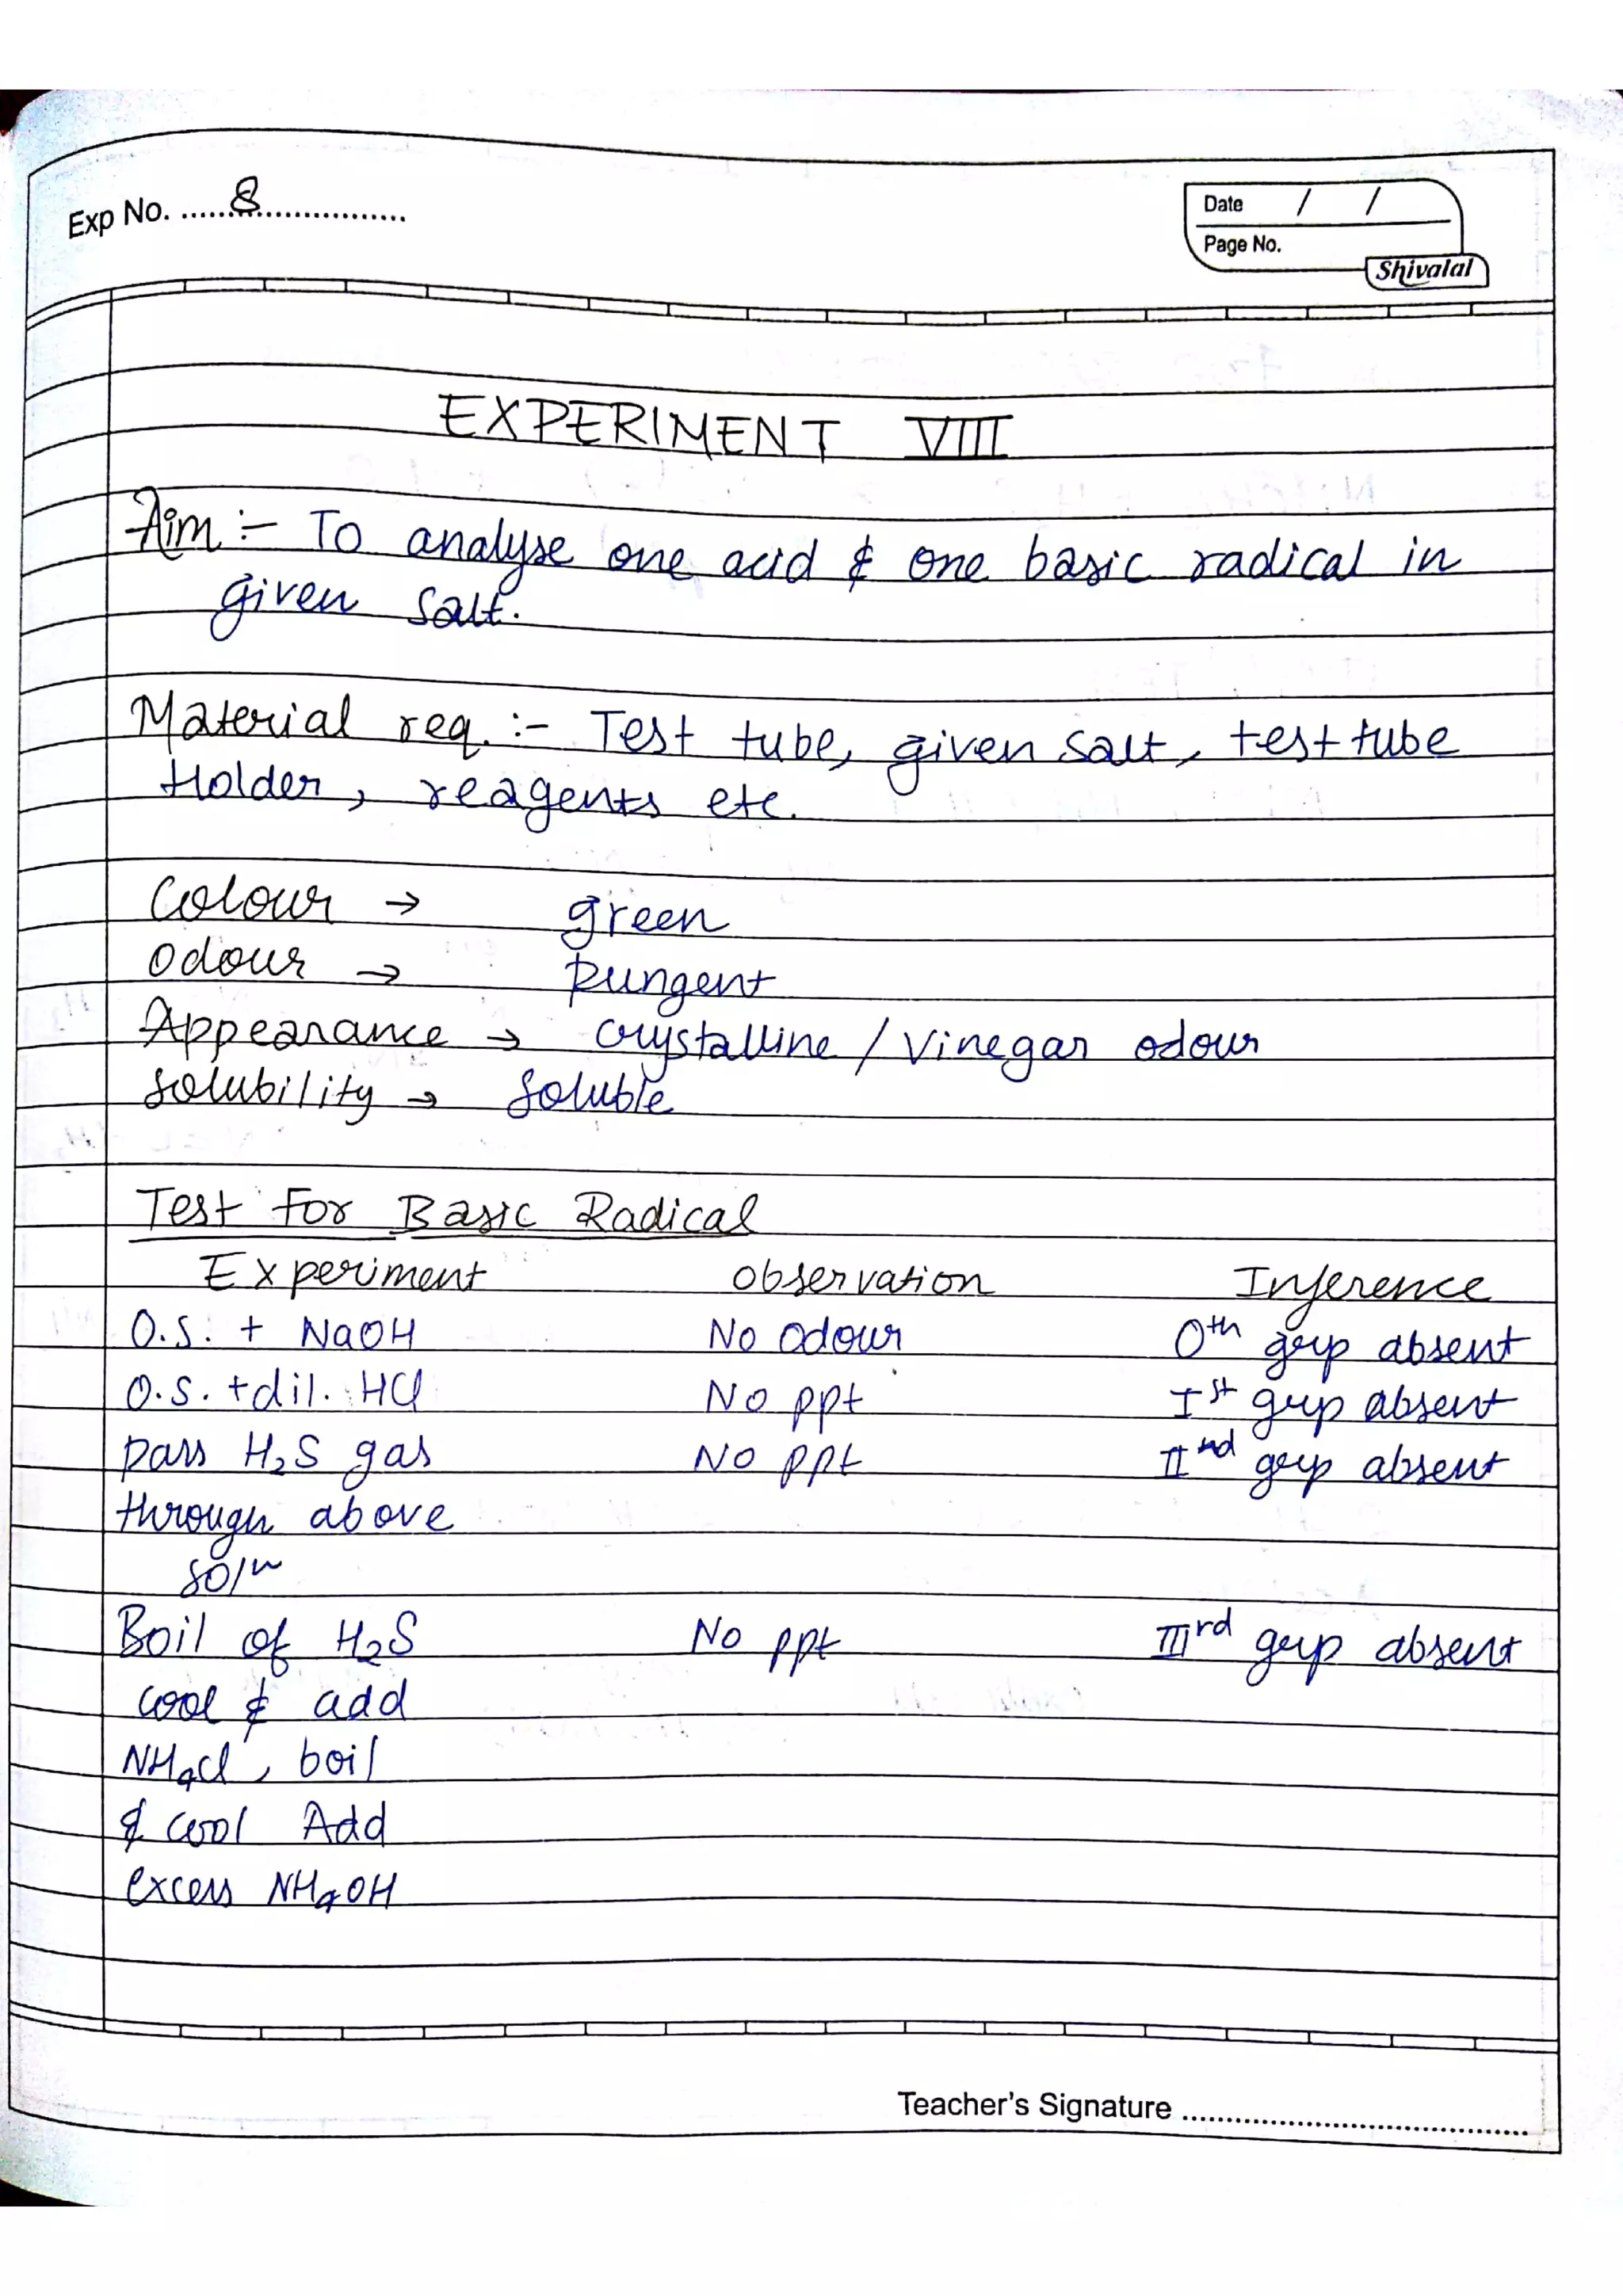 Exp No. ......8......................
Date / /
Page No.
Shivalal
EXPERIMENT VIII
Aim :- To analyse one acid & one basic radical in
given salt.
Material req. :- Test tube, given salt, test tube
Holder, reagents etc.
Colour → green
Odour → Pungent
Appearance → Crystalline / Vinegar odour
Solubility → Soluble
Test For Basic Radical
Experiment Observation Inference
O.S. + NaOH No Odour 0th grp absent
O.S. + dil. HCl No ppt Ist grp absent
pass H2S gas No ppt IInd grp absent
through above
soln
Boil of H2S No ppt IIIrd grp absent
cool & add
NH4Cl, boil
& cool Add
excess NH4OH
Teacher's Signature ........................................